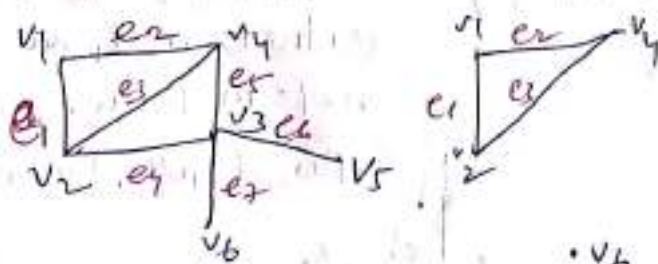 v1 e2 v4
e3 e5
e1 v3 e6
v2 e4 e7 v5
v6
v1 e2 v4
e1 e3
v2
v6